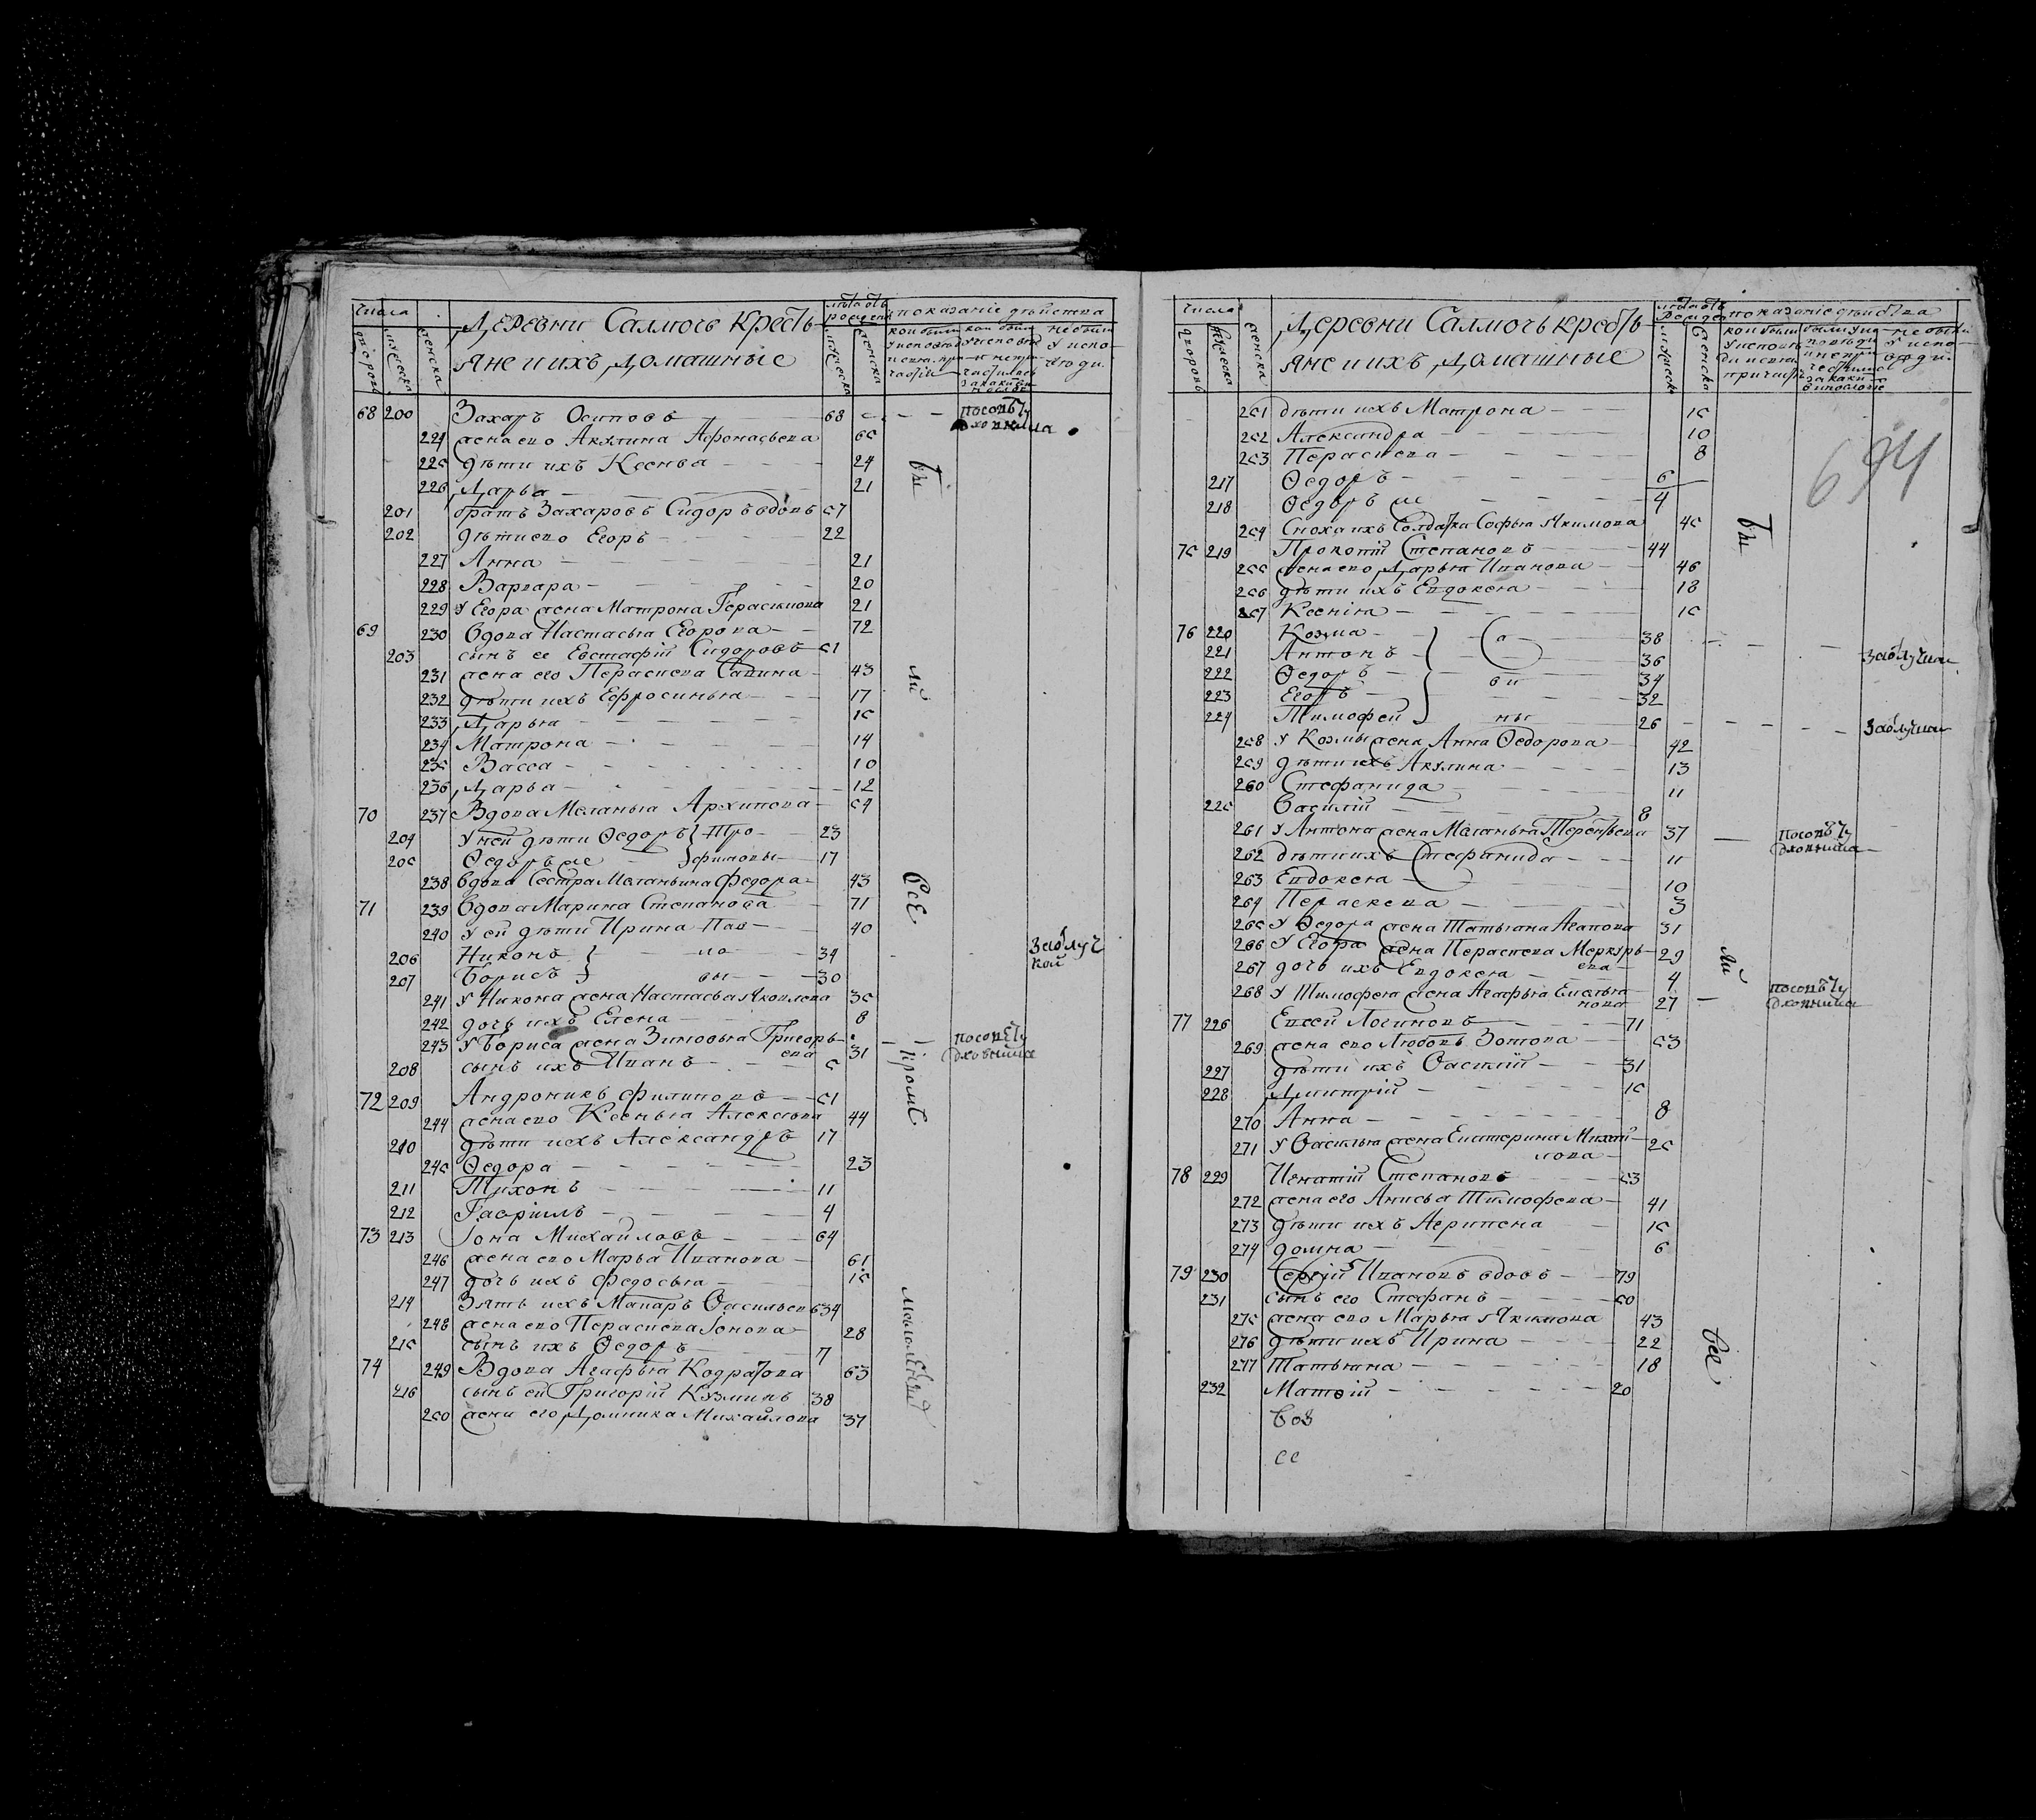 числа
Деревни Салмочь кресть-
яне и ихъ домашныe
лѣта отъ рожден
показаніе дѣйства
дворовъ
мужеска
женска
мужеска
женска
68 200 Захаръ Осиповъ 68 посовѣту духовника
224 жена ево Акулина Афонасьева 65
225 дѣти ихъ Ксенья 24
226 Дарья 21
201 братъ Захаровъ Сидоръ вдовъ 57
202 дѣти ево Егоръ 22
227 Анна 21
228 Варвара 20
229 У Егора жена Матрона Герасимова 21
69 230 Вдова Настасья Егорова 72
203 сынъ ее Евстафій Сидоровъ 51
231 жена его Пераскева Савина 43
232 дѣти ихъ Ефросинья 17
233 Дарья 15
234 Матрона 14
235 Васса 10
236 Дарья 12
70 237 Вдова Меланья Архипова 54
204 У ней дѣти Ѳедоръ } Тро- 23
205 Ѳедоръ же } фимовы 17
238 Вдова Сестра Меланьина Федора 43
71 239 Вдова Марина Степанова 71
240 У ей дѣти Ирина Пав- 40
206 Никонъ } ло 34 Заблуч
207 Борисъ } вы 30 кой
241 У Никона жена Настасья Яковлева 35
242 дочь ихъ Елена 8
243 У Бориса жена Зиновья Григорь-
ева 31 посовѣту духовника
208 сынъ ихъ Иванъ 5
72 209 Андроникъ Филиповъ 51
244 жена ево Ксенья Алексѣева 44
210 дѣти ихъ Александръ 17
245 Ѳедора 23
211 Тихонъ 11
212 Гаврилъ 4
73 213 Іона Михайловъ 64
246 жена ево Марья Иванова 61
247 дочь ихъ Федосья 15
214 Зять ихъ Макаръ Васильевъ 34
248 жена ево Пераскева Іонова 28
215 сынъ ихъ Ѳедоръ 7
74 249 Вдова Агафья Кодратова 63
216 сынъ ей Григорій Кузминъ 38
250 жена его Домника Михайлова 37
бы
ли
Все
кромѣ
малолѣтнихъ
числа
Деревни Салмочь кресть-
яне и ихъ домашные
показаніе дѣйства
694
251 дѣти ихъ Матрона 15
252 Александра 10
253 Пераскева 8
217 Ѳедоръ 6
218 Ѳедоръ же 4
254 Сноха ихъ Солдатка Софья Якимова 45
75 219 Прокопій Степановъ 44
255 жена ево Дарья Иванова 46
256 дѣти ихъ Евдокея 18
257 Ксенія 15
76 220 Козма } Са 38
221 Антонъ 36 Заблучнои
222 Ѳедоръ ви 34
223 Егоръ 32
224 Тимофей } ны 26 Заблучнои
258 У Козмы жена Анна Ѳедорова 42
259 дѣти ихъ Акулина 13
260 Стефанида 11
225 Василій 8
261 У Антона жена Меланья Терентьева 37 посовѣту духовника
262 дѣти ихъ Стефанида 11
263 Евдокея 10
264 Пераскева 3
265 У Ѳедора жена Татьяна Агапова 31
266 У Егора жена Пераскева Меркурь-
ева 29
267 дочь ихъ Евдокея 4
268 У Тимофея жена Агафья Емелья-
нова 27 посовѣту духовника
77 226 Евсей Логиновъ 71
269 жена ево Любовь Зотова 53
227 дѣти ихъ Василій 31
228 Дмитрій 15
270 Анна 8
271 У Василья жена Екатерина Михай-
лова 25
78 229 Игнатій Степановъ 53
272 жена его Анисья Тимофеева 41
273 дѣти ихъ Агрипена 15
274 домна 6
79 230 Сергій Ивановъ вдовъ 79
231 сынъ его Стефанъ 50
275 жена ево Марья Якимова 43
276 дѣти ихъ Ирина 22
277 Татьяна 18
232 Матѳій 20
бы
ли
все